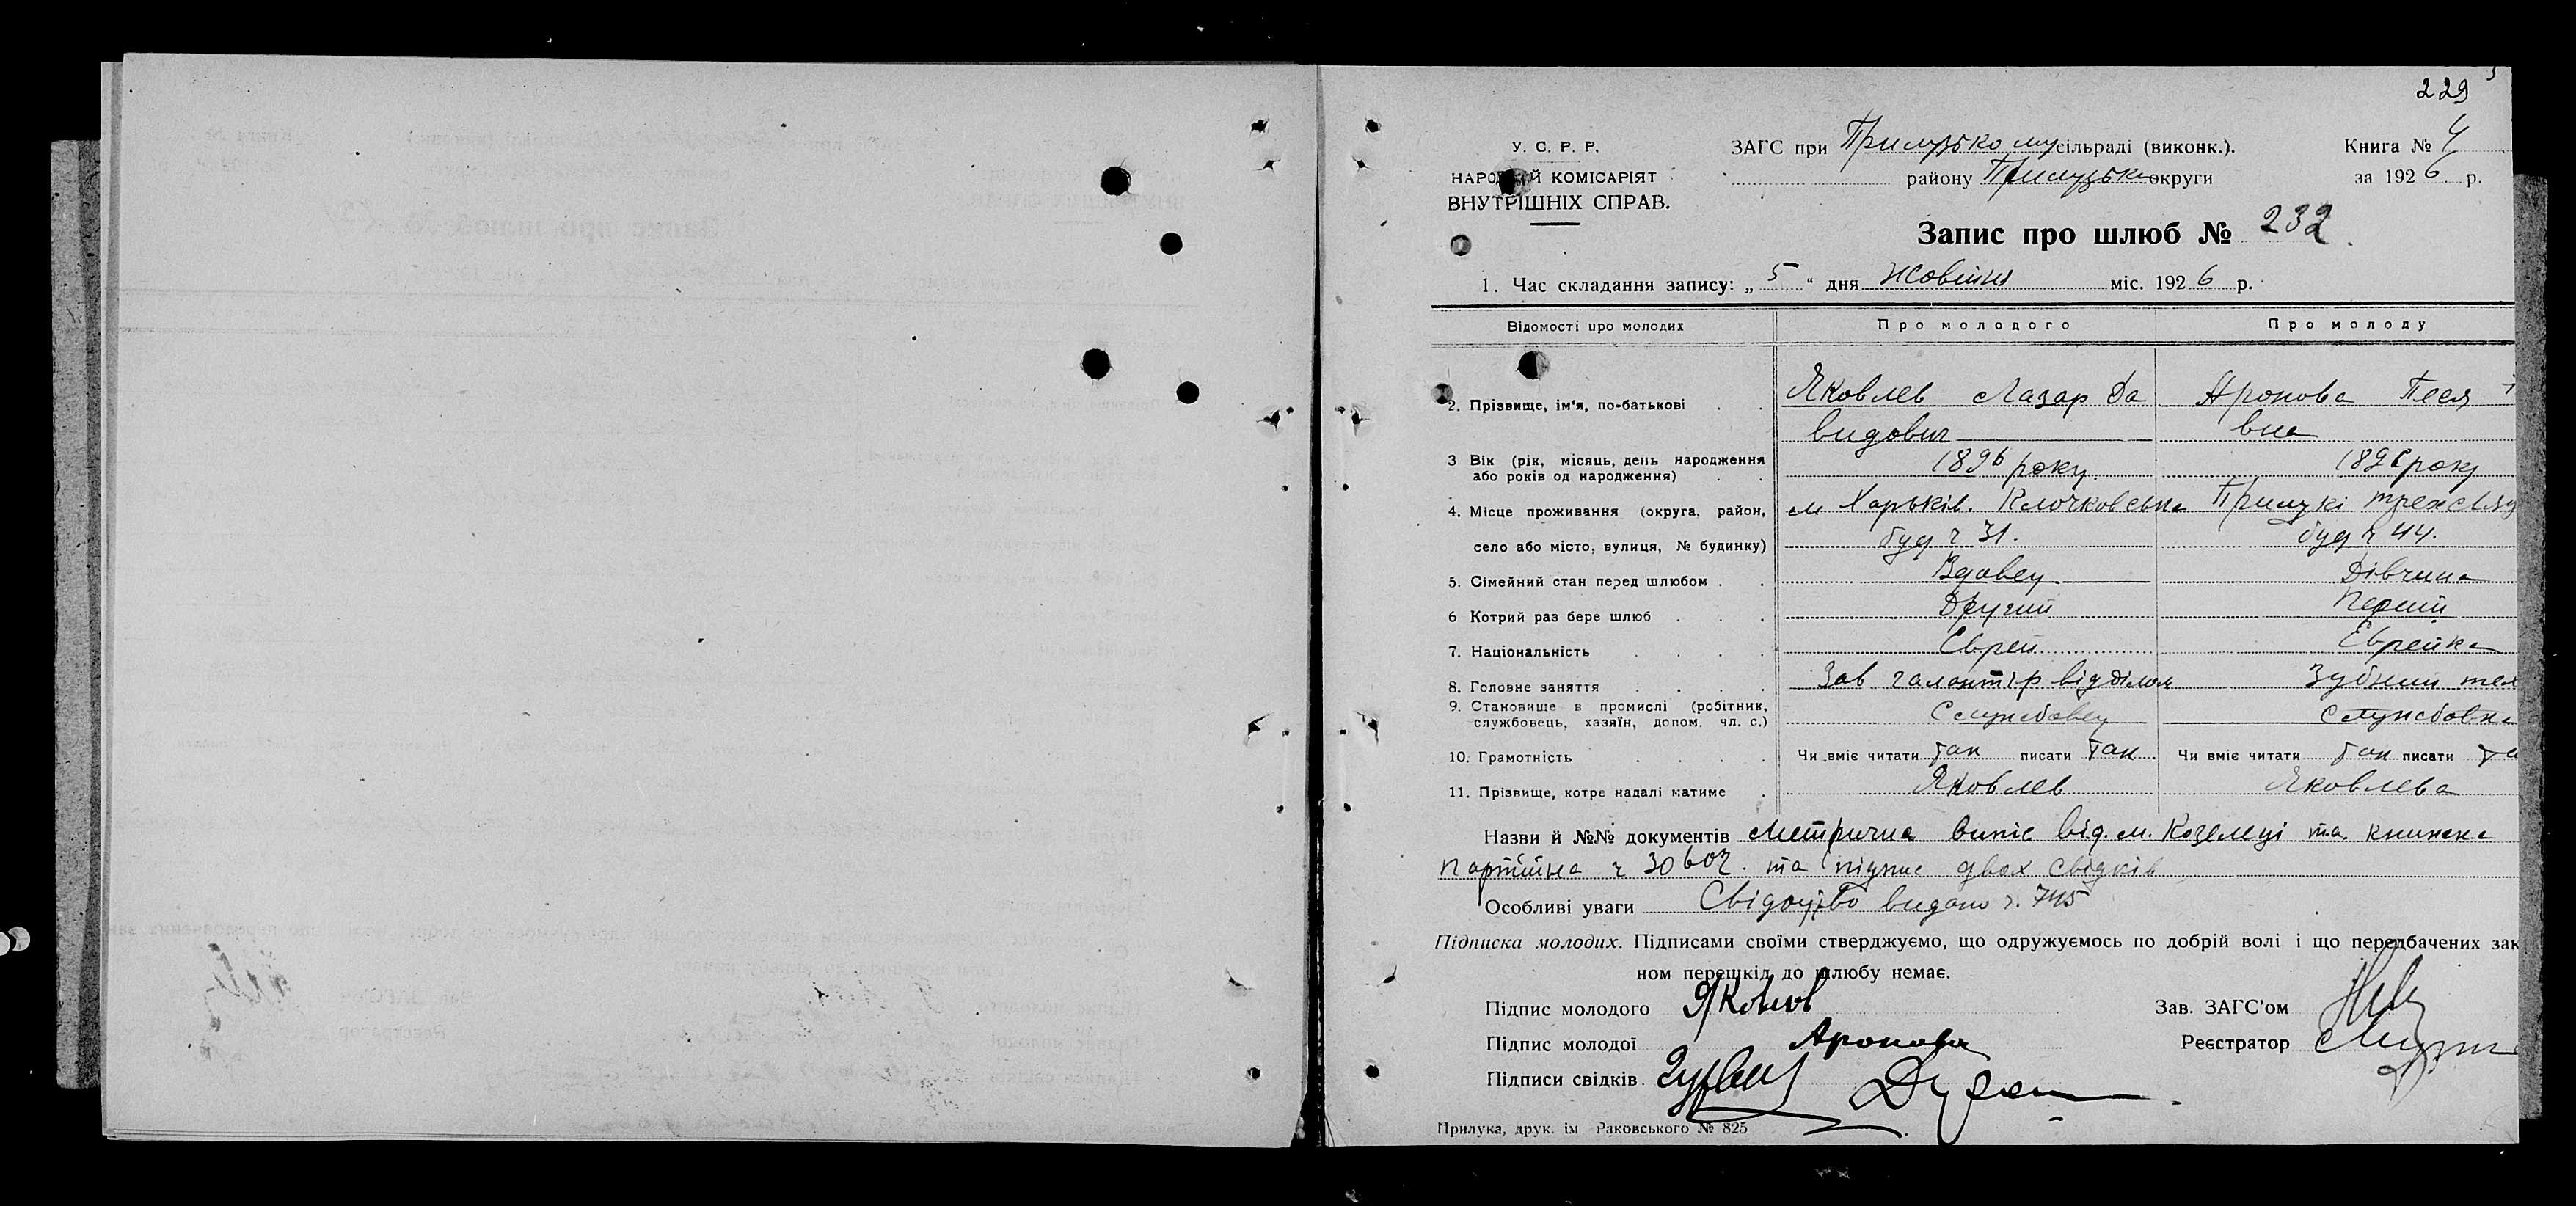 229
У. С. Р. Р.
НАРОДНИЙ КОМІСАРІЯТ
ВНУТРІШНІХ СПРАВ.
ЗАГС при Прилуцькому сільраді (виконк.).
району Прилуцько округи
Книга № 4
за 1926 р.
Запис про шлюб № 232
1. Час складання запису: „ 5 “ дня Жовтня міс. 1926 р.
Відомості про молодих Про молодого Про молоду
2. Прізвище, ім'я, по-батькові Яковлев Лазар Да Аронова Песя
видович вна
3 Вік (рік, місяць, день народження 1896 року 1896 року
або років од народження)
4. Місце проживання (округа, район, м Харьків. Клочковська Прилукі
село або місто, вулиця, № будинку) буд ч 31. буд ч 44.
5. Сімейний стан перед шлюбом Вдовец Дівчина
6 Котрий раз бере шлюб Другий Перший
7. Національність Єврей Єврейка
8. Головне заняття Зав галантір відділом Зубний тех
9. Становище в промислі (робітник,
службовець, хазяїн, допом. чл. с.) Службовец Службовка
10. Грамотність Чи вміє читати так писати так Чи вміє читати так писати та
11. Прізвище, котре надалі матиме Яковлев Яковлева
Назви й №№ документів Метрична випис від. м. Козелеці та книжка
партійна ч та підпис двох свідків
Особливі уваги Свідоцтво видано ч. 745
Підписка молодих. Підписами своїми стверджуємо, що одружуємось по добрій волі і що передбачених зак
ном перешкід до шлюбу немає.
Підпис молодого Яковлев
Зав. ЗАГС'ом
Підпис молодої Аронова
Реєстратор
Підписи свідків
Прилука, друк. ім Раковського № 825